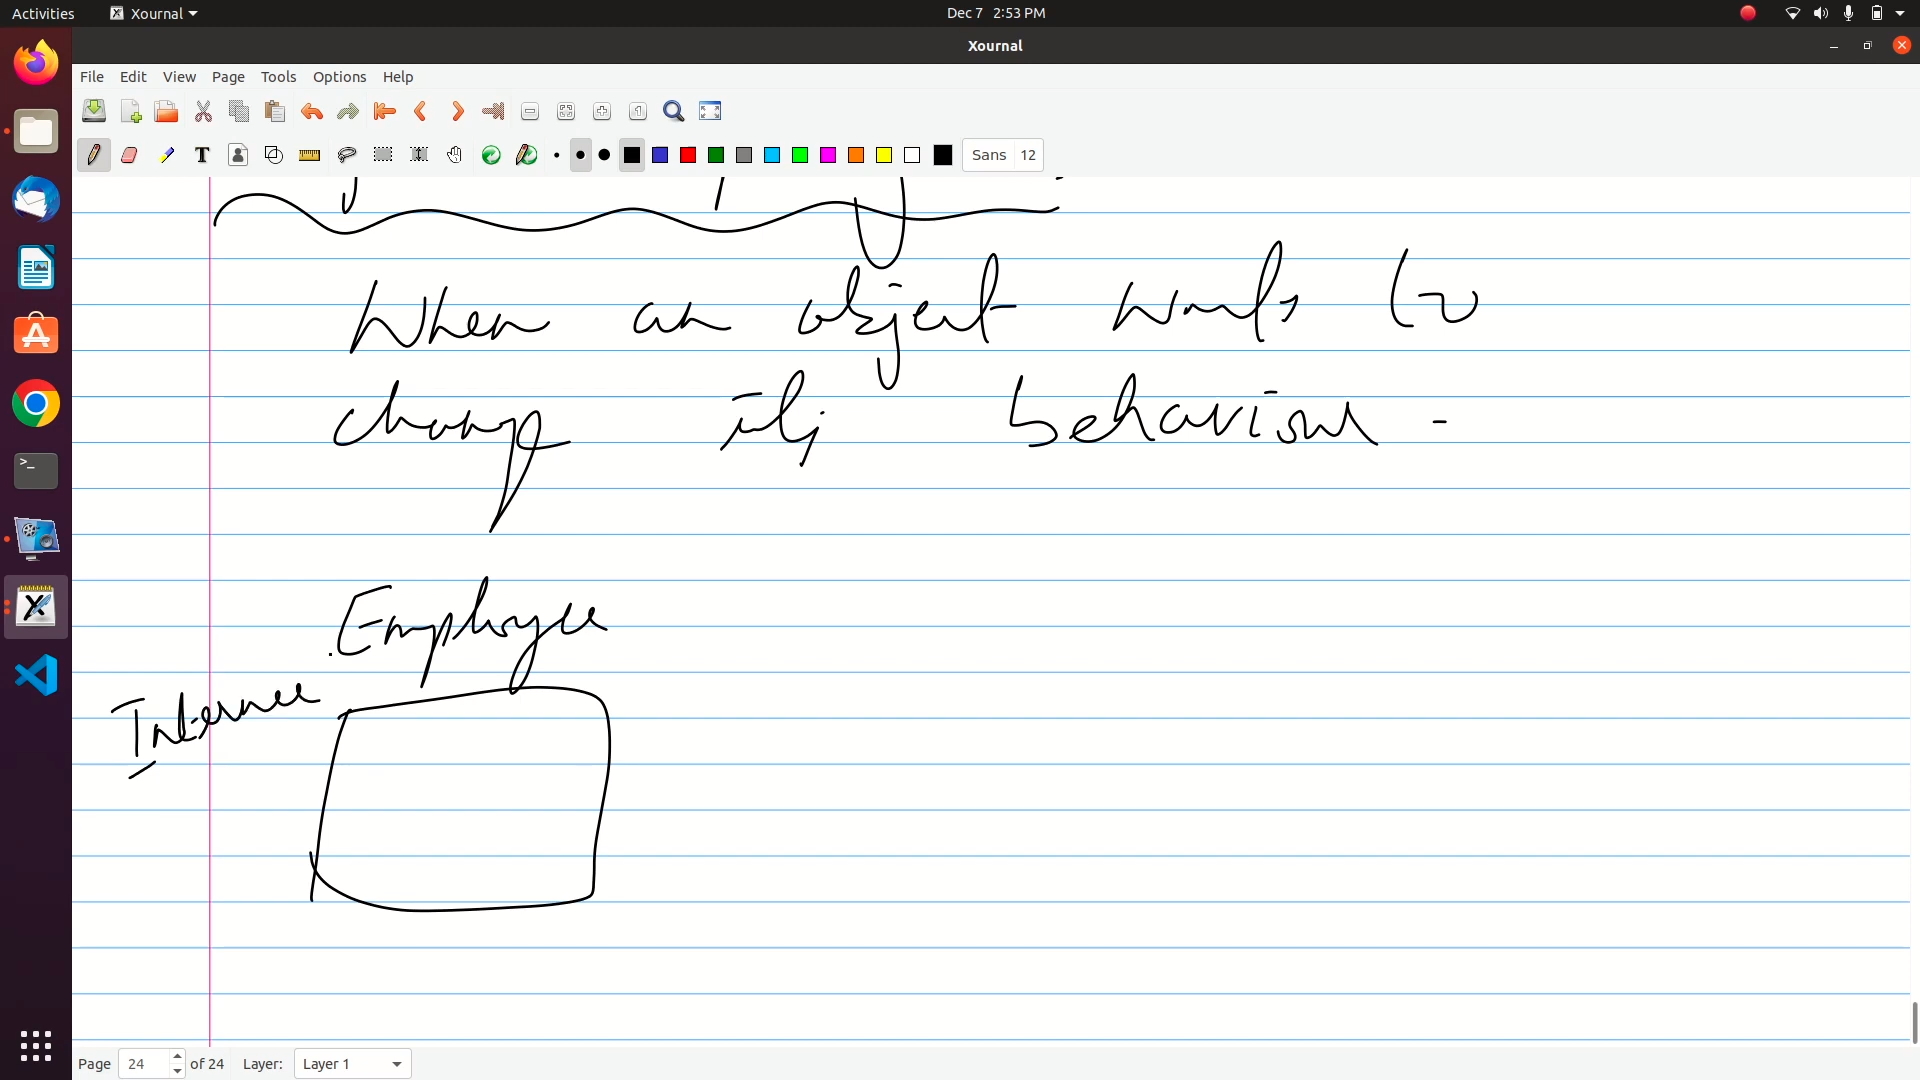 Activities Xournal Dec 7 2:53 PM
Xournal
File Edit View Page Tools Options Help
Sans 12
When an object wants to
change its behaviour -
Employee
Page 24 of 24 Layer: Layer 1